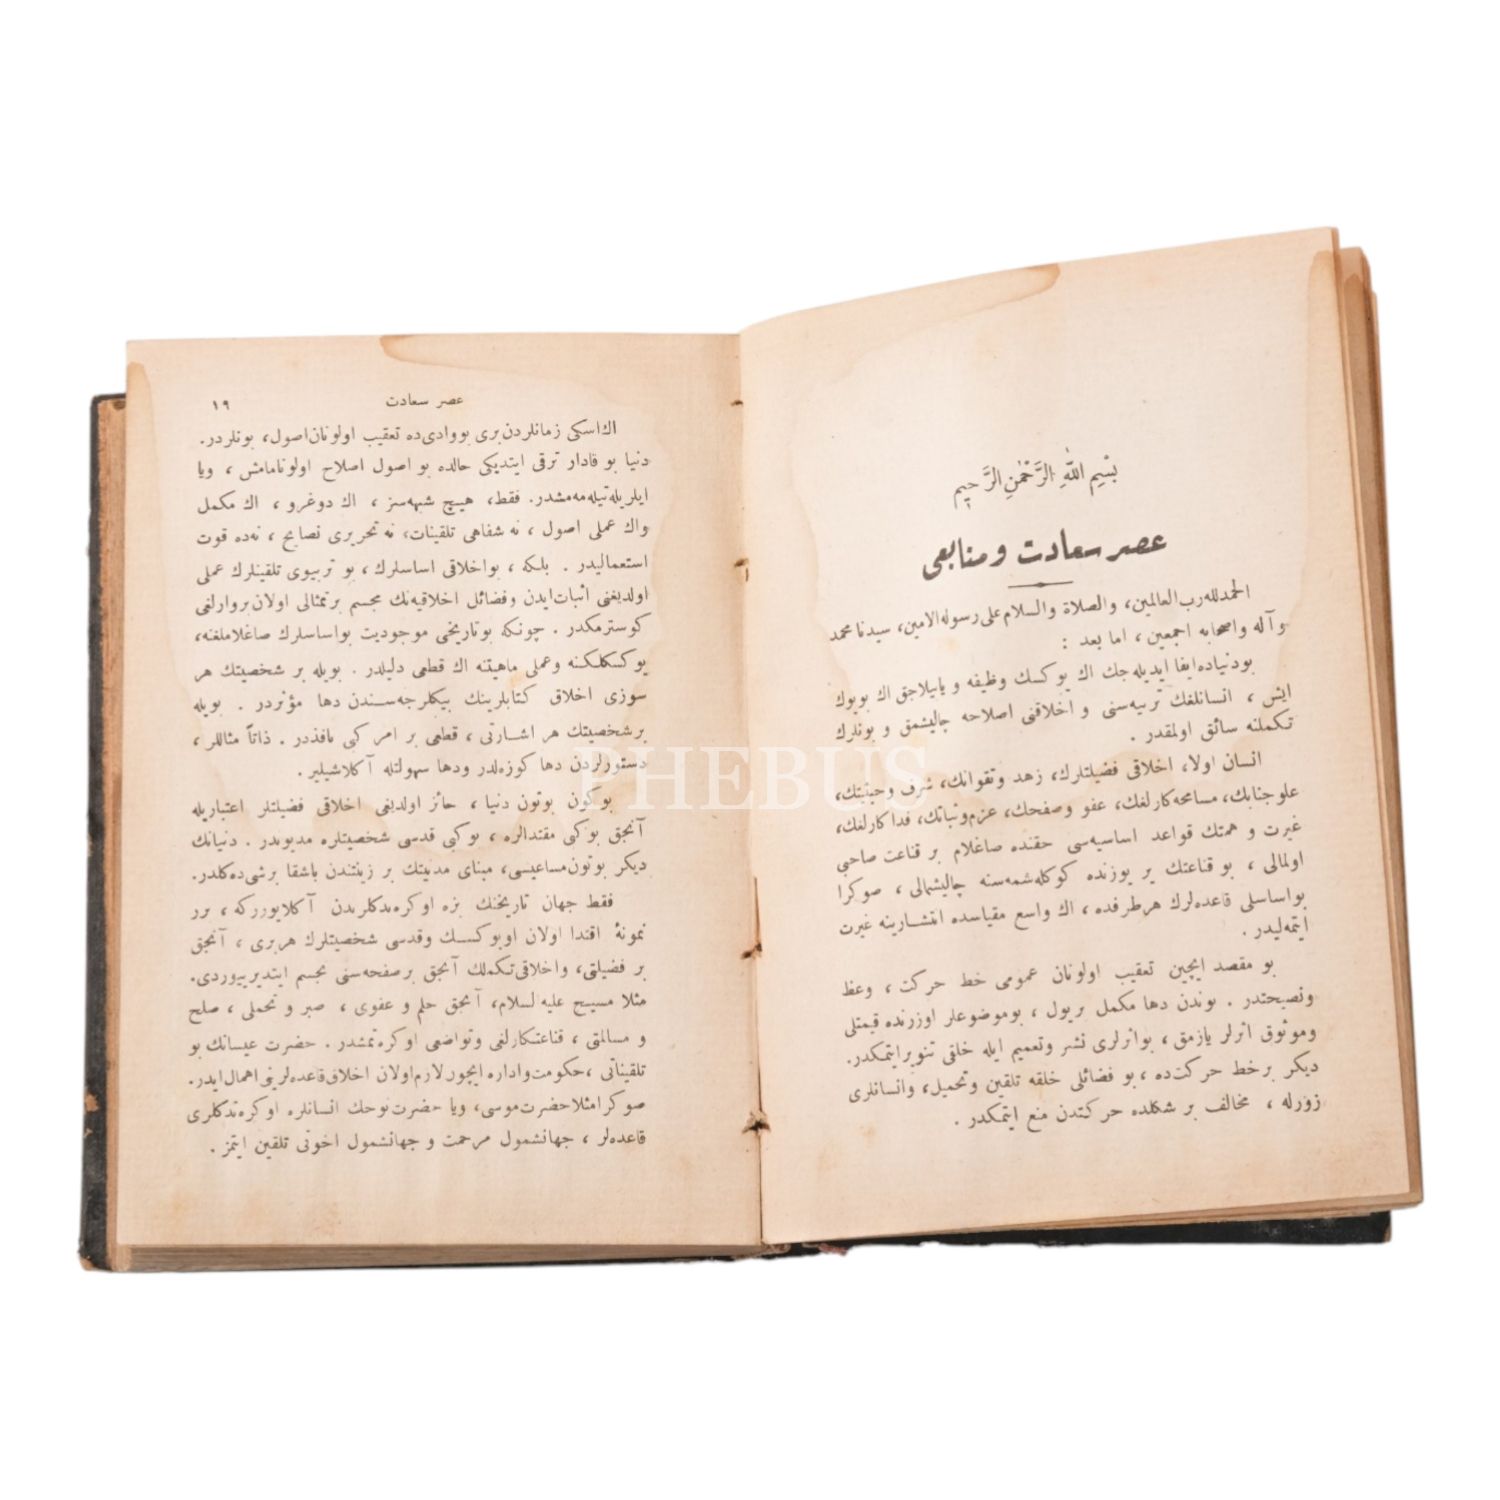 بِسْمِ اللّٰهِ الرَّحْمٰنِ الرَّحِيمِ
عصر سعادت و منابعى
الحمدلله رب العالمين، والصلاة والسلام على رسوله الامين، سيدنا محمد
وآله واصحابه اجمعين ، اما بعد :
بودنياده ايفا ايديله جك اك يوكسك وظيفه و ياپيلاجق اك بويوك
ايش ، انسانلغك تربيه‌سنى و اخلاقنى اصلاحه چاليشمق و بونلرك
تكملنه سائق اولمقدر .
انسان اولا، اخلاقى فضيلتلرك، زهد وتقوانك، شرف وحيثيتك،
علو جنابك، مسامحه‌كارلغك، عفو وصفحك، عزم‌وثباتك، فداكارلغك،
غيرت و همتك قواعد اساسيه‌سى حقنده صاغلام بر قناعت صاحبى
اولمالى ، بو قناعتك ير يوزنده كوكله‌شمه‌سنه چاليشمالى ، صوكرا
بواساسلى قاعده‌لرك هرطرفده ، اك واسع مقياسده انتشارينه غيرت
ايتمه‌ليدر .
بو مقصد ايچين تعقيب اولونان عمومى خط حركت ، وعظ
ونصيحتدر . بوندن دها مكمل بريول ، بوموضوعلر اوزرنده قيمتلى
وموثوق اثرلر يازمق ، بواثرلرى نشر وتعميم ايله خلقى تنويرايتمكدر.
ديكر برخط حركت‌ده ، بو فضائلى خلقه تلقين وتحميل، وانسانلرى
زورله ، مخالف بر شكلده حركتدن منع ايتمكدر .
عصر سعادت ١٩
اك‌اسكى زمانلردن‌برى بووادى‌ده تعقيب اولونان‌اصول، بونلردر.
دنيا بو قادار ترقى ايتديكى حالده بو اصول اصلاح اولونامامش ، ويا
ايلريله‌تيله‌مه‌مشدر. فقط، هيچ شبهه‌سز ، اك دوغرو ، اك مكمل
واك عملى اصول ، نه شفاهى تلقينات، نه تحريرى نصايح ، نه‌ده قوت
استعماليدر . بلكه ، بواخلاقى اساسلرك ، بو تربيوى تلقينلرك عملى
اولديغنى اثبات‌ايدن وفضائل اخلاقيه‌نك مجسم برتمثالى اولان‌بروارلغى
كوسترمكدر . چونكه بوتاريخى موجوديت بواساسلرك صاغلاملغنه،
يوكسكلكنه وعملى ماهيتنه اك قطعى دليلدر . بويله بر شخصيتك هر
سوزى اخلاق كتابلرينك بيكلرجه‌سندن دها مؤثردر . بويله
برشخصيتك هر اشارتى ، قطعى بر امر كبى نافذدر . ذاتاً مثاللر ،
دستورلردن دها كوزه‌لدر ودها سهولتله آكلاشيلير .
بوكون بوتون دنيا ، حائز اولديغى اخلاقى فضيلتلر اعتباريله
آنجق بوكبى مقتدالره ، بوكبى قدسى شخصيتلره مديوندر . دنيانك
ديكر بوتون‌مساعيسى، مبناى مدنيتك بر زينتندن باشقا برشى‌ده‌كلدر.
فقط جهان تاريخنك بزه اوكره‌تدكلرندن آكلايورزكه ، برر
نمونهٔ اقتدا اولان اويوكسك وقدسى شخصيتلرك هربرى ، آنجق
بر فضيلتى، واخلاقى‌تكملك آنجق برصفحه‌سنى تجسم ايتديرييوردى.
مثلا مسيح عليه‌السلام، آنجق حلم و عفوى ، صبر و تحملى ، صلح
و مسالمتى ، قناعتكارلغى وتواضعى اوكره‌تمشدر . حضرت عيسانك بو
تلقيناتى ، حكومت‌واداره ايچون‌لازم‌اولان اخلاق‌قاعده‌لرينى اهمال‌ايدر.
صوكرامثلاحضرت‌موسى، ويا حضرت‌نوحك انسانلره اوكره‌تدكلرى
قاعده‌لر ، جهانشمول مرحمت و جهانشمول اخوتى تلقين ايتمز .
PHEBUS